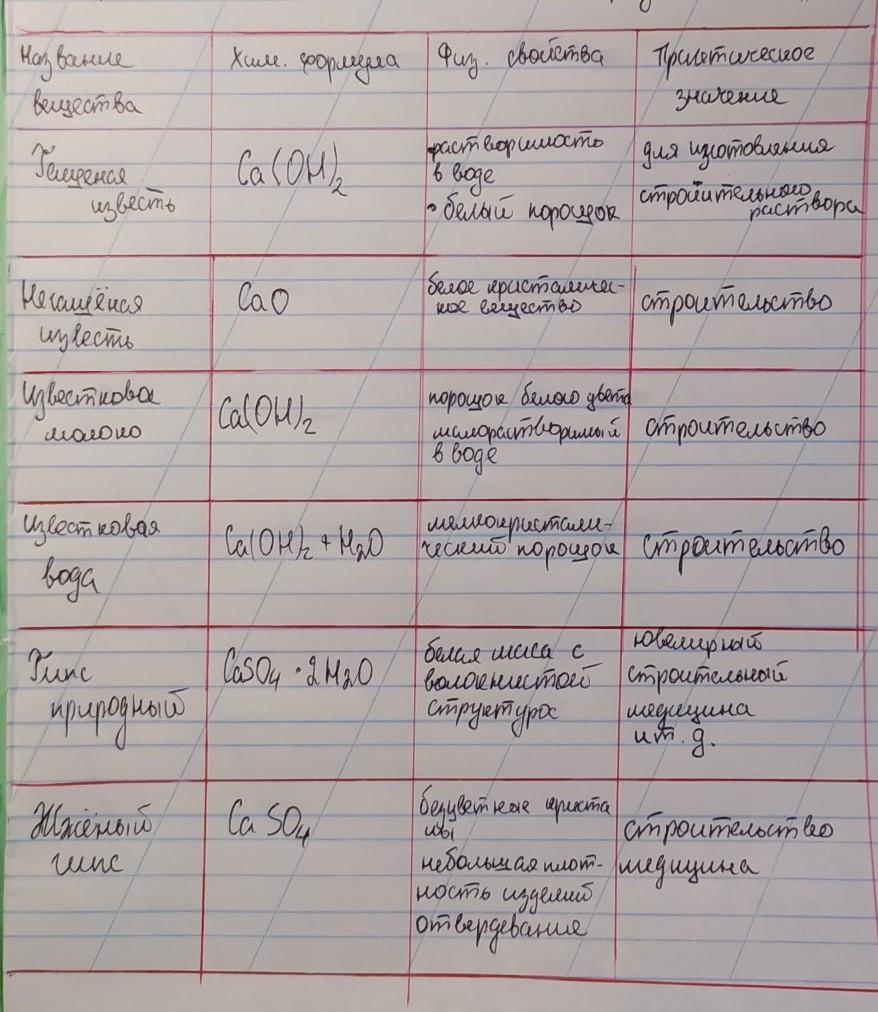 Название
вещества
Хим. формула
Физ. свойства
Практическое
значение
Гашеная
известь
Ca(OH)2
растворимость
в воде
• белый порошок
для изготовления
строительного
раствора
Негашёная
известь
CaO
белое кристаличес-
кое вещество
строительство
Известковое
молоко
Ca(OH)2
порошок белого цвета
малорастворимый
в воде
строительство
известковая
вода
Ca(OH)2 + H2O
мелкокристали-
ческий порошок
строительство
Гипс
природный
CaSO4 • 2H2O
белая маса с
волокнистой
структурой
ювелирный
строительный
медицина
и т. д.
Жжёный
гипс
CaSO4
безцветные криста
лы
небольшая плот-
ность изделий
отвердевание
строительство
медицина